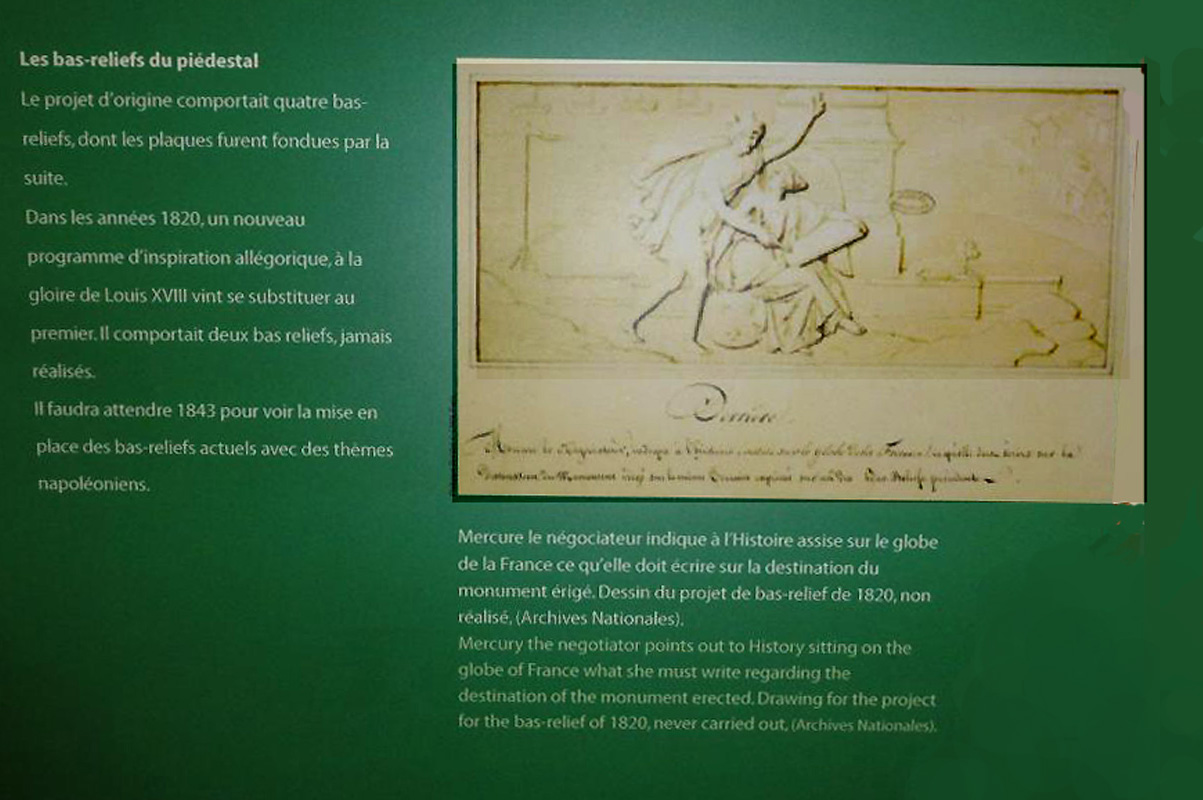 Les bas-reliefs du piédestal
Le projet d'origine comportait quatre bas-
reliefs, dont les plaques furent fondues par la
suite.
Dans les années 1820, un nouveau
programme d'inspiration allégorique, à la
gloire de Louis XVIII vint se substituer au
premier. Il comportait deux bas reliefs, jamais
réalisés.
Il faudra attendre 1843 pour voir la mise en
place des bas-reliefs actuels avec des thèmes
napoléoniens.
Derrière
Mercure le négociateur indique à l'Histoire assise sur le globe
de la France ce qu'elle doit écrire sur la destination du
monument érigé. Dessin du projet de bas-relief de 1820, non
réalisé, (Archives Nationales).
Mercury the negotiator points out to History sitting on the
globe of France what she must write regarding the
destination of the monument erected. Drawing for the project
for the bas-relief of 1820, never carried out, (Archives Nationales).